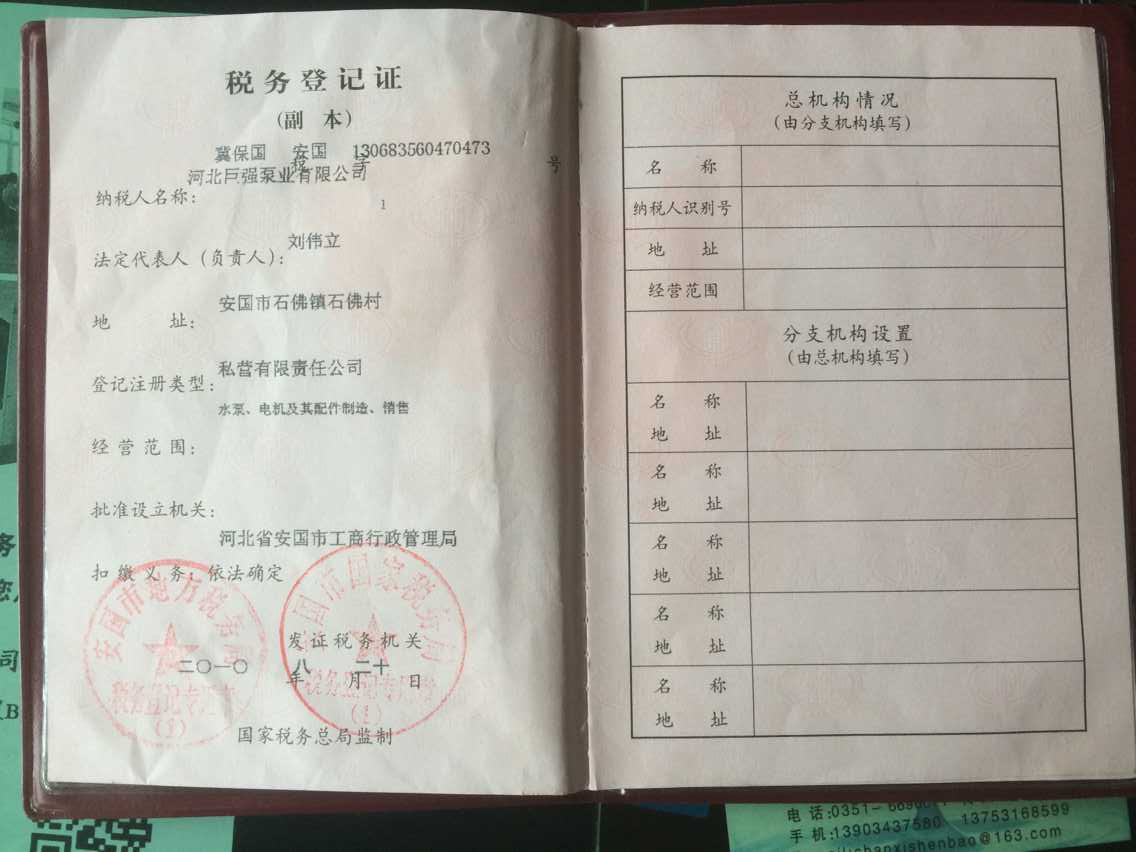 税务登记证
(副 本)
冀保国 安国 130683560470473
税 字 号
河北巨强泵业有限公司
纳税人名称：
1
刘伟立
法定代表人（负责人）：
安国市石佛镇石佛村
地 址：
私营有限责任公司
登记注册类型：
水泵、电机及其配件制造、销售
经营范围：
批准设立机关：
河北省安国市工商行政管理局
扣缴义务：依法确定
安国市地方税务局
税务登记专用章
国市国家税务局
税务登记专用章
(1)
发证税务机关
二〇一〇 八 二十
年 月 日
国家税务总局监制
总机构情况
（由分支机构填写）
名 称
纳税人识别号
地 址
经营范围
分支机构设置
（由总机构填写）
名 称
地 址
名 称
地 址
名 称
地 址
名 称
地 址
名 称
地 址
务
司
B
电话:0351-
手机:13903437580 13753168599
chanxishenbao@163.com